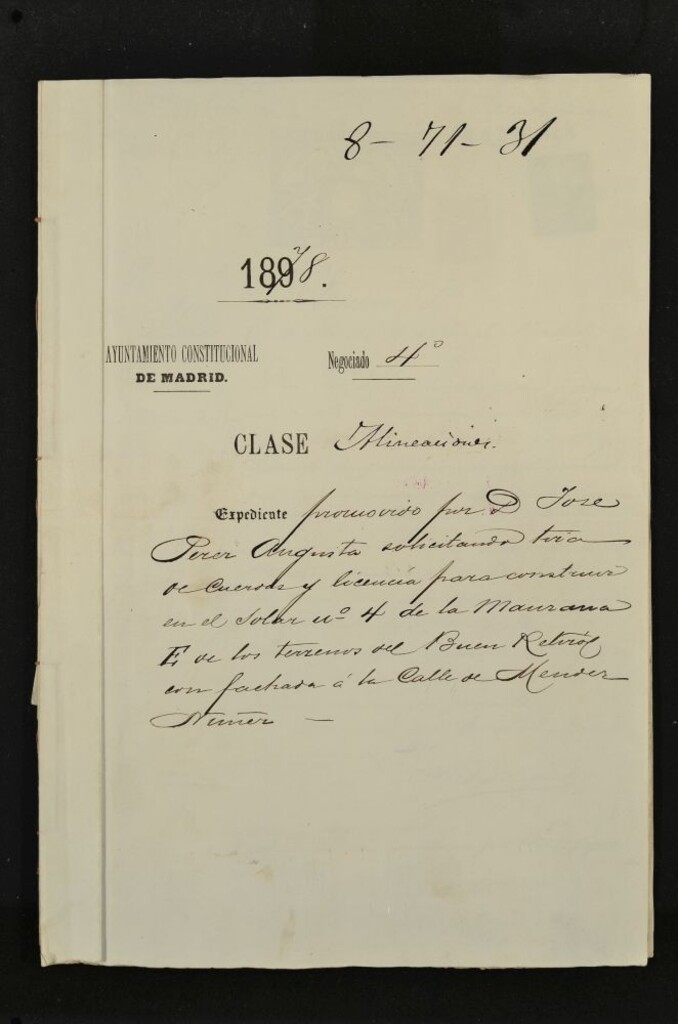 8 - 71 - 31
1878.
AYUNTAMIENTO CONSTITUCIONAL
DE MADRID.
Negociado 4º
CLASE Alineaciones.
Expediente promovido por D Jose
Perez Angusta solicitando tira
de Cuerdas y licencia para construir
en el Solar nº 4 de la Manzana
E de los terrenos del Buen Retiro
con fachada á la Calle de Mendez
Nuñez —